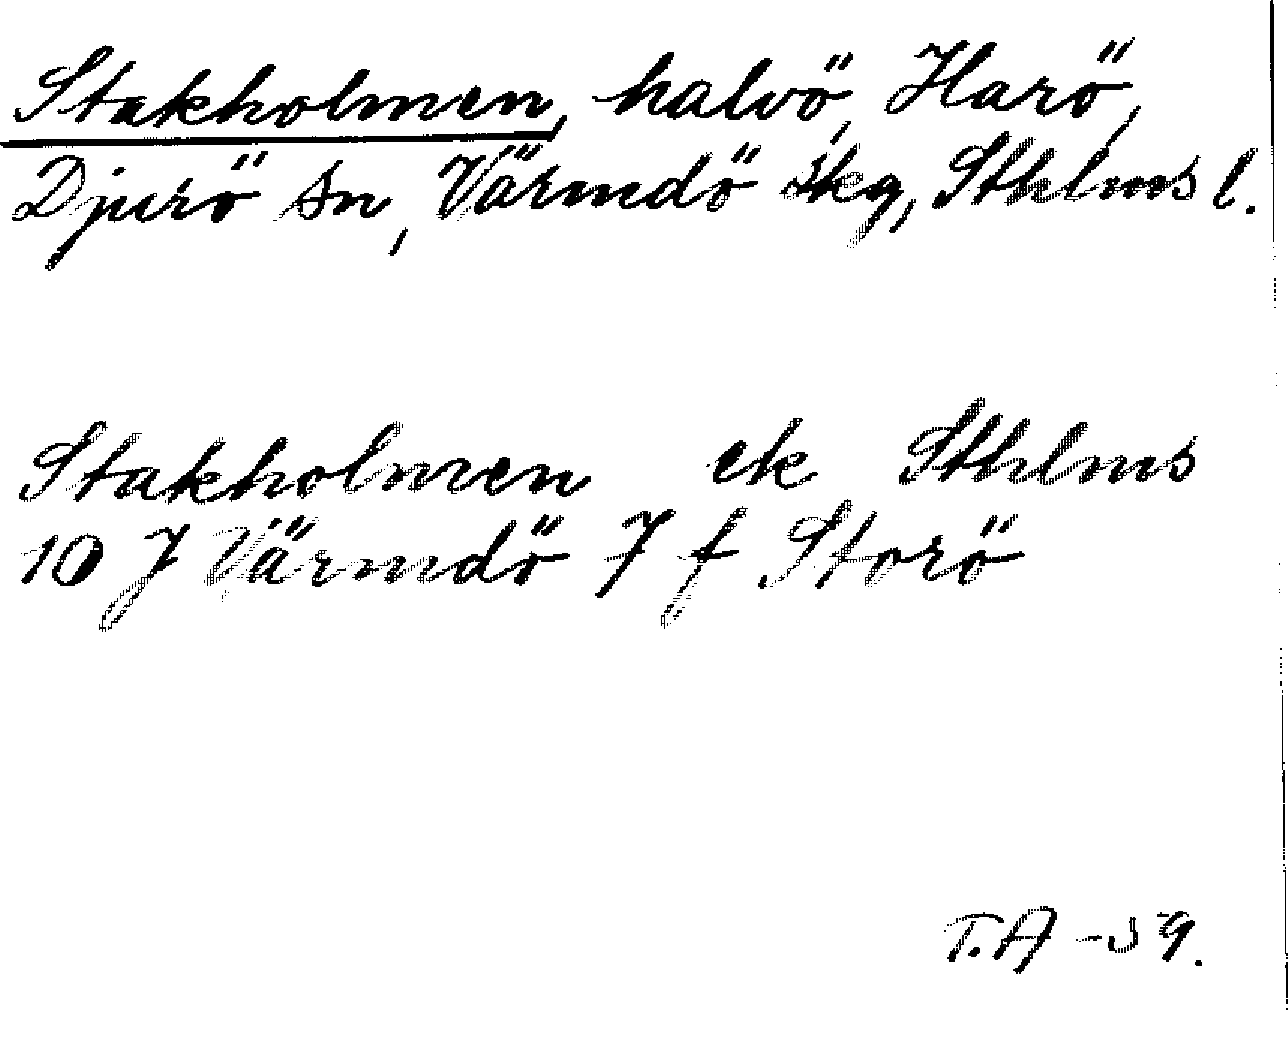 Stakholmen, halvö, Harö,
Djurö sn, Värmdö skg, Sthlms l.
Stakholmen ek Sthlms
10 J Värmdö 7 f Storö
T.A -39.